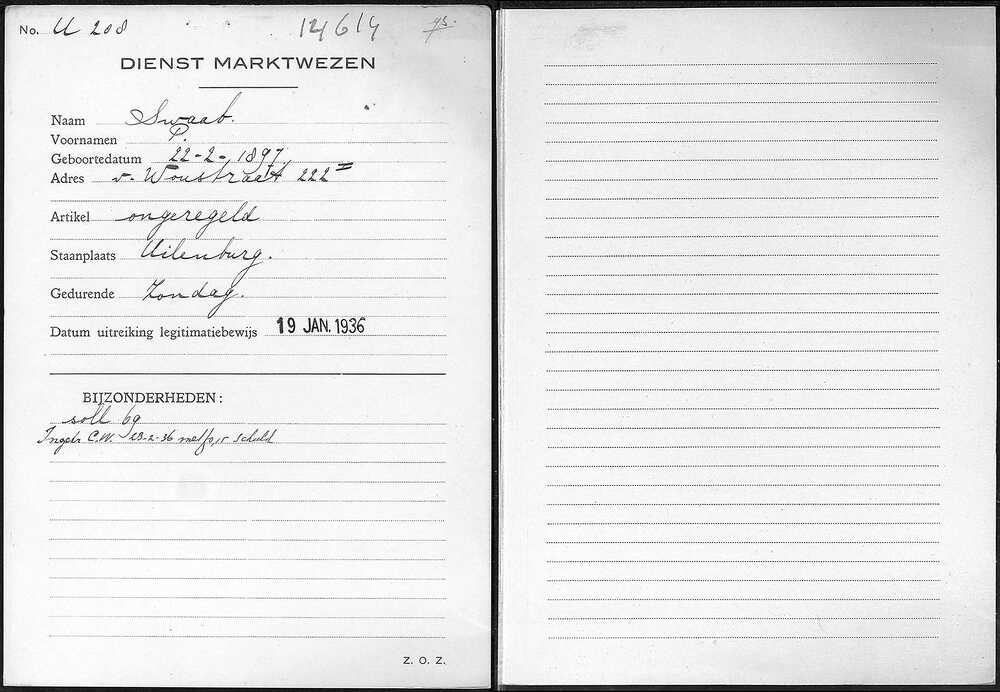 No. U 208 12/6/4
DIENST MARKTWEZEN
Naam Swaab.
Voornamen P.
Geboortedatum 22-2-1897.
Adres v. Woustraat 222 II
Artikel ongeregeld
Staanplaats Uilenburg.
Gedurende Zondag.
Datum uitreiking legitimatiebewijs 19 JAN. 1936
BIJZONDERHEDEN:
soll 69
Ingetr. C.W. 28-2-36 met f 0,15 schuld
Z. O. Z.